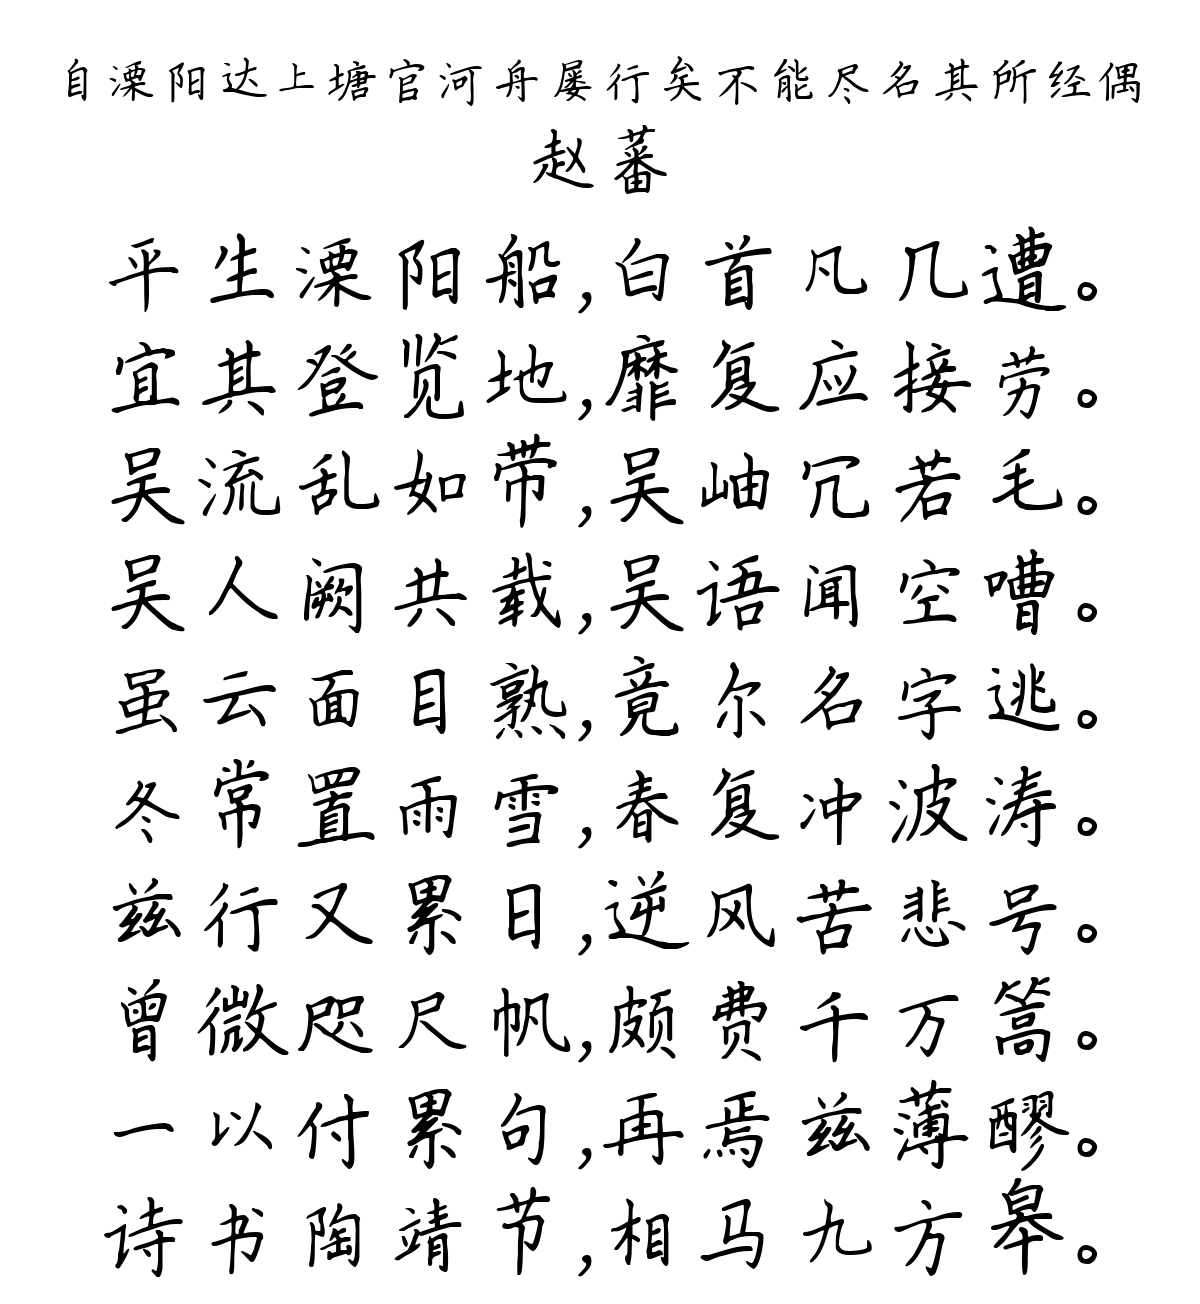 自溧阳达上塘官河舟屡行矣不能尽名其所经偶
赵蕃
平生溧阳船,白首凡几遭。
宜其登览地,靡复应接劳。
吴流乱如带,吴岫冗若毛。
吴人阙共载,吴语闻空嘈。
虽云面目熟,竟尔名字逃。
冬常置雨雪,春复冲波涛。
兹行又累日,逆风苦悲号。
曾微咫尺帆,颇费千万篙。
一以付累句,再焉兹薄醪。
诗书陶靖节,相马九方皋。